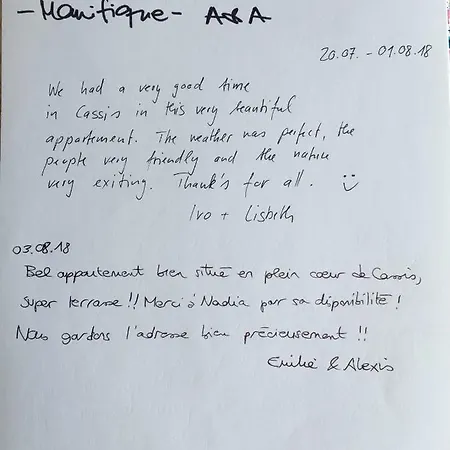 - Manifique - A&A
20.07. - 01.08.18
We had a very good time
in Cassis in this very beautiful
appartement. The weather was perfect, the
people very friendly and the nature
very exiting. Thank's for all. :)
Ivo + Lisbeth
03.08.18
Bel appartement bien situé en plein cœur de Cassis,
super terrasse !! Merci à Nadia par sa disponibilité !
Nous gardons l'adresse bien précieusement !!
Emilie & Alexis